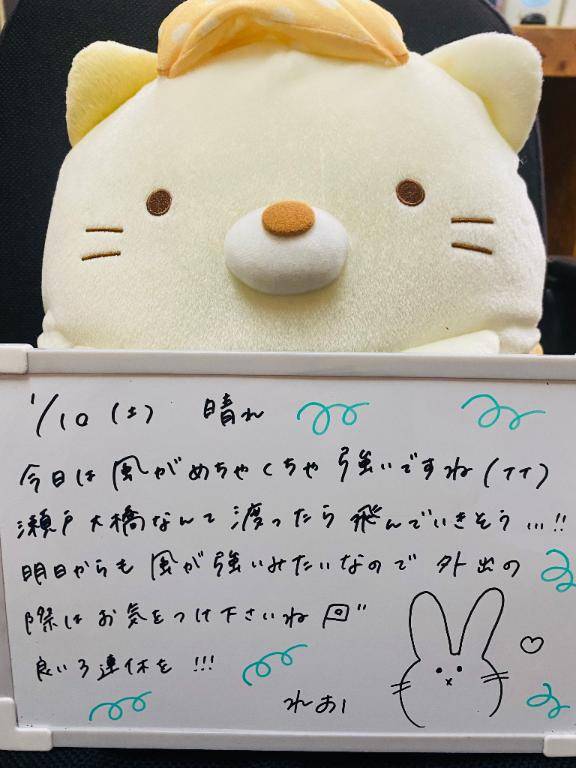 1/10 (土) 晴れ
今日は風がめちゃくちゃ強いですね(TT)
瀬戸大橋なんて渡ったら飛んでいきそう...!!
明日からも風が強いみたいなので外出の
際はお気をつけ下さいね
良い3連休を!!!
れおん